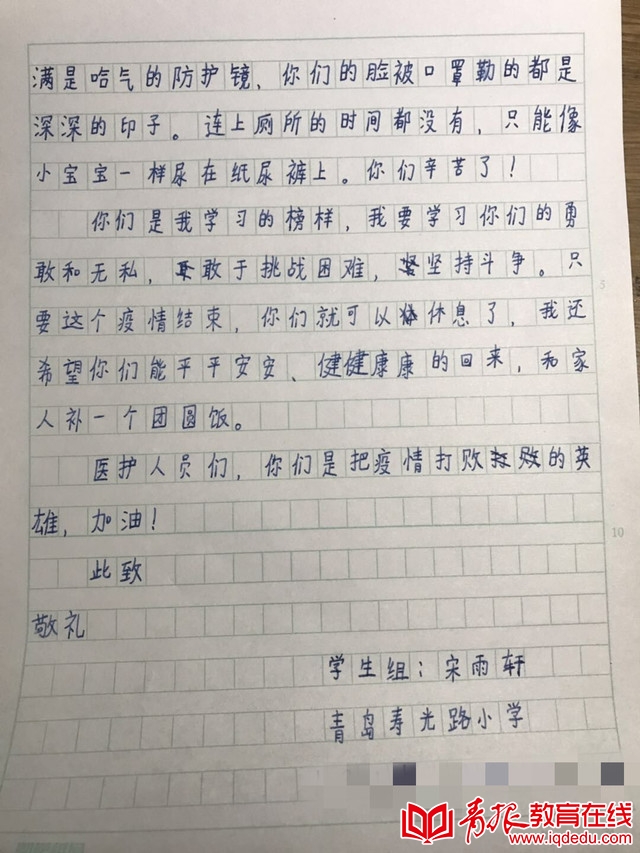 满是哈气的防护镜，你们的脸被口罩勒的都是
深深的印子。连上厕所的时间都没有，只能像
小宝宝一样尿在纸尿裤上。你们辛苦了！
你们是我学习的榜样，我要学习你们的勇
敢和无私，敢于挑战困难，坚持斗争。只
要这个疫情结束，你们就可以休息了，我还
希望你们能平平安安、健健康康的回来，和家
人补一个团圆饭。
医护人员们，你们是把疫情打败的英
雄，加油！
此致
敬礼
学生组：宋雨轩
青岛寿光路小学
5
10
青报教育在线
www.iqdedu.com